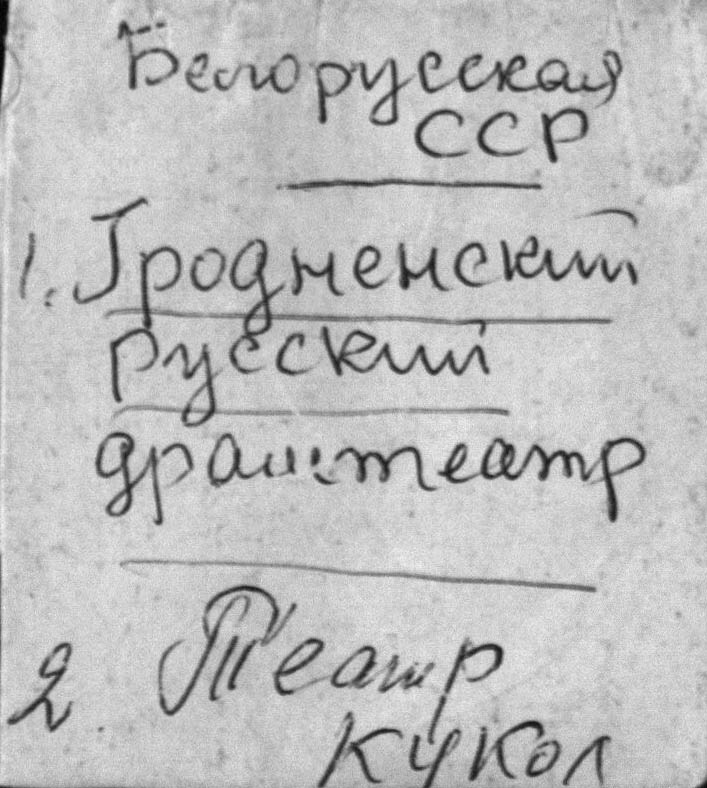 Белорусская
ССР
1. Гродненский
русский
драмтеатр
2. Театр
кукол